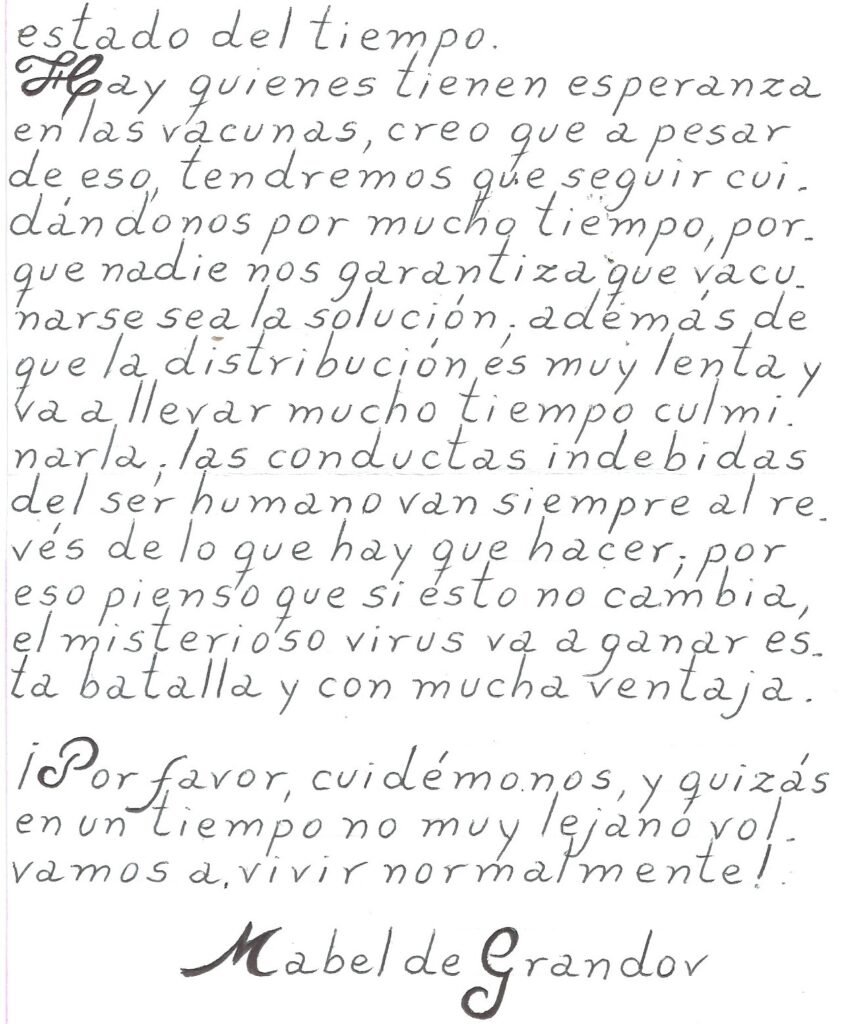 estado del tiempo.
Hay quienes tienen esperanza
en las vacunas, creo que a pesar
de eso, tendremos que seguir cui-
dándonos por mucho tiempo, por-
que nadie nos garantiza que vacu-
narse sea la solución; además de
que la distribución es muy lenta y
va a llevar mucho tiempo culmi-
narla; las conductas indebidas
del ser humano van siempre al re-
vés de lo que hay que hacer; por
eso pienso que si esto no cambia,
el misterioso virus va a ganar es-
ta batalla y con mucha ventaja.
¡Por favor, cuidémonos, y quizás
en un tiempo no muy lejano vol-
vamos a vivir normalmente!.
Mabel de Grandov